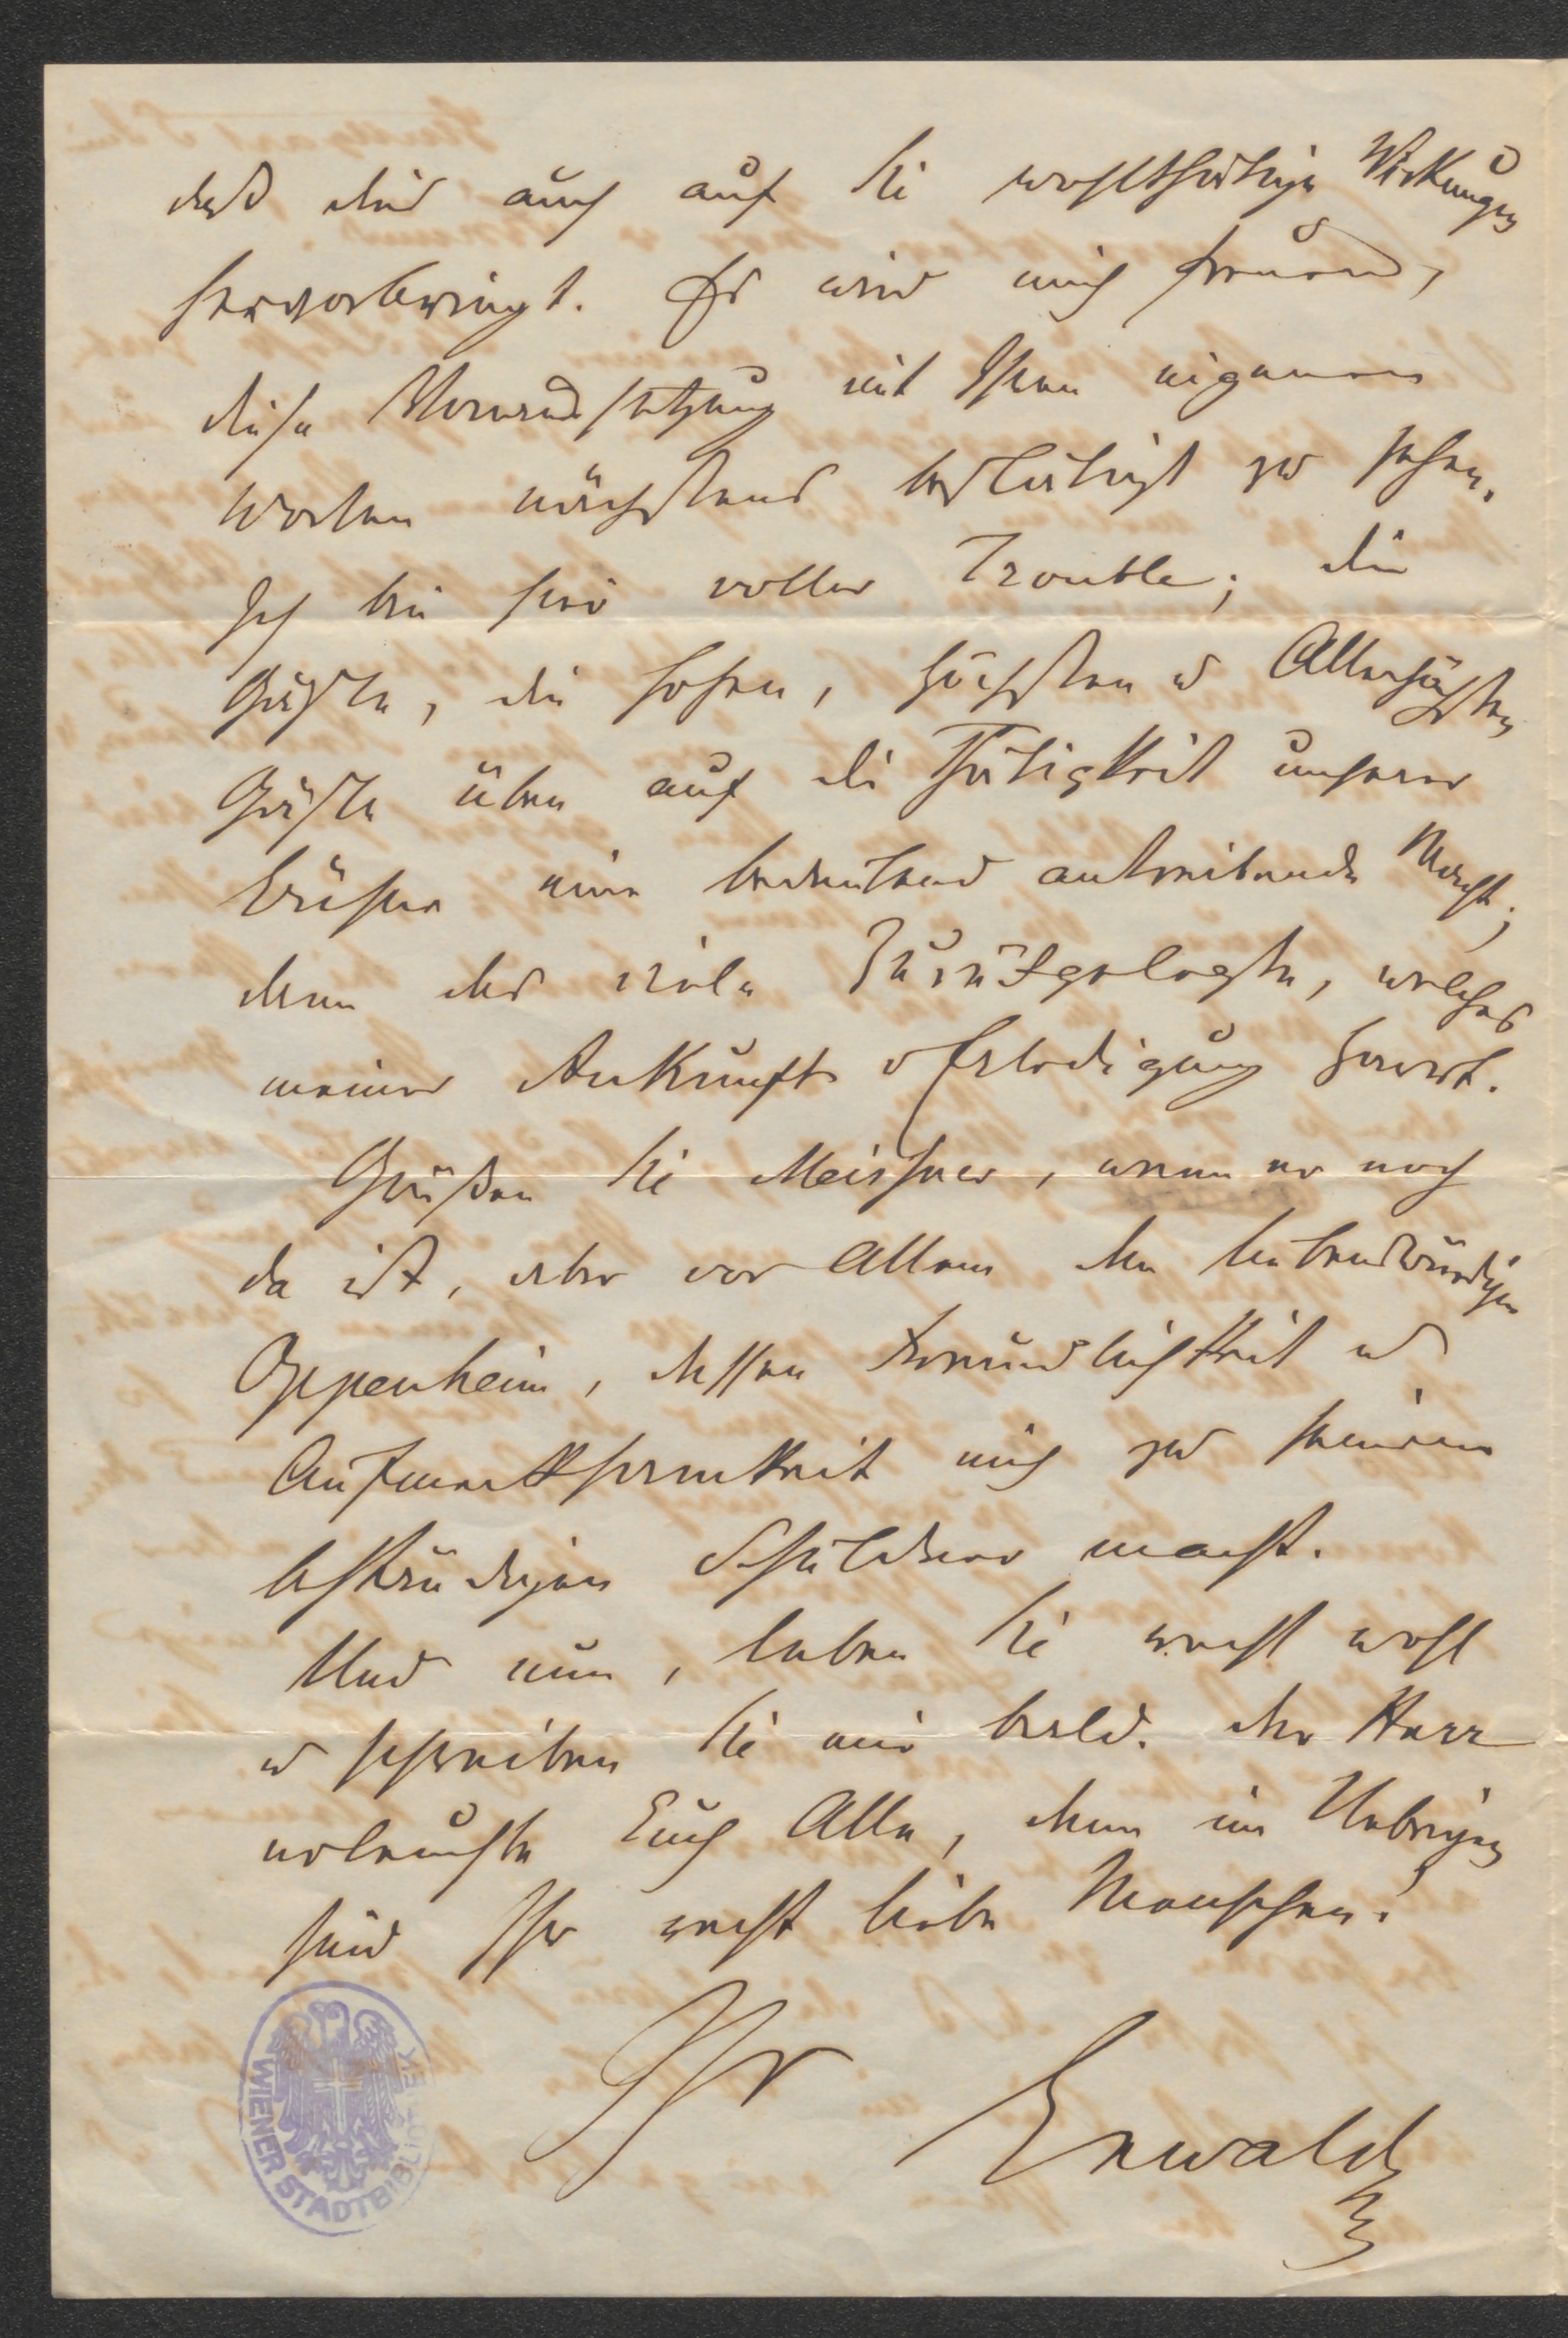 daß dies auch auf Sie wohlthätige Wirkungen
hervorbringt. Es wird mich freuen,
diese Voraussetzung mit Ihren eigenen
Worten nächstens bestätigt zu sehen.
Ich bin hier voller Trouble; die
Gäste, die hohen, höchsten u Allerhöchsten
Gäste üben auf die Thätigkeit unserer
Bühne eine bedeutend antreibende Macht;
dann das viele Zurückgelegte, welches
meiner Ankunft u Erledigung harrt.
Grüßen Sie Meissner, wenn er noch
da ist, aber vor Allem den liebenswürdigen
Oppenheim, dessen Freundlichkeit u
Aufmerksamkeit mich zu seinem
beständigen Schuldner macht.
Und nun, leben Sie recht wohl
u schreiben Sie mir bald. Der Herr
erleuchte Euch Alle, denn im Uebrigen
seid Ihr recht liebe Menschen!
Ihr
Grwald
WIENER STADTBIBLIOTHEK